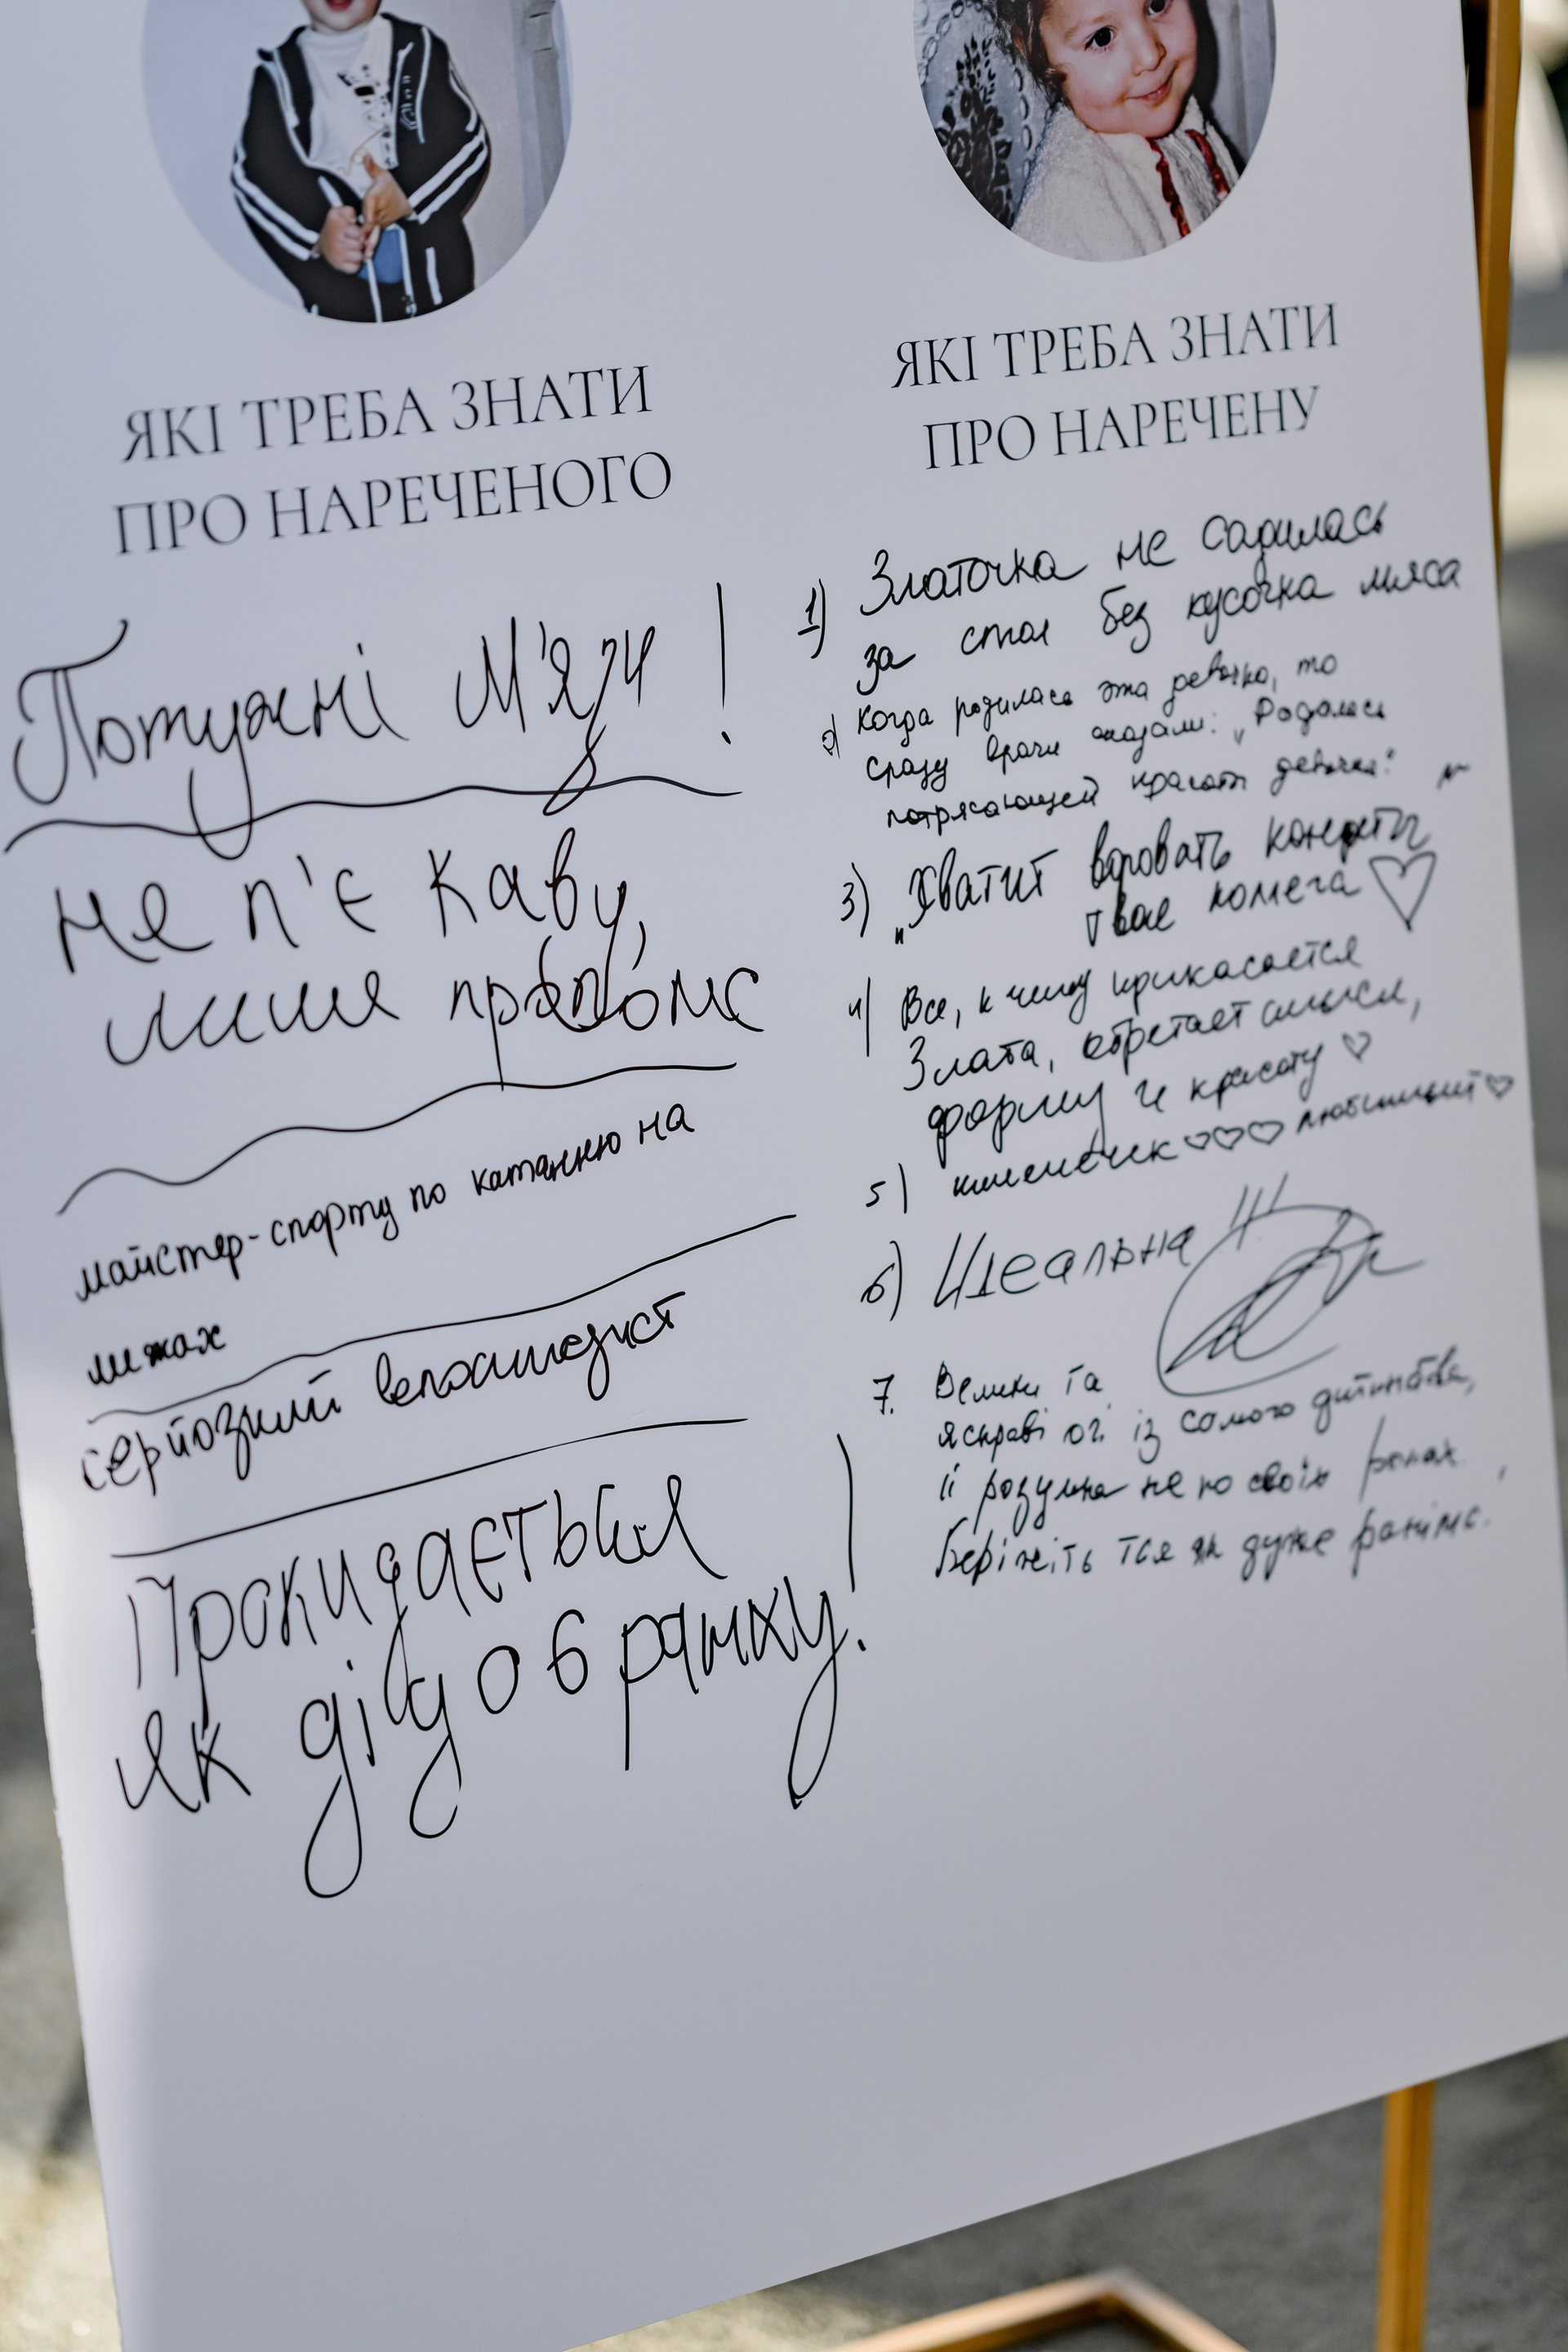 ЯКІ ТРЕБА ЗНАТИ
ПРО НАРЕЧЕНОГО
Потужні М'язи!
не п'є каву,
лише
майстер-спорту по катанню на
лижах
серйозний велосипедист
Прокидається
як дід о 6 ранку!
ЯКІ ТРЕБА ЗНАТИ
ПРО НАРЕЧЕНУ
1) Златочка не садилась
за стол без кусочка мяса
2) Когда родилась эта девочка, то
сразу врачи сказали: „Родилась
потрясающей красоты девочка"
3) „Хватит воровать конфеты"
твое
4) Все, к чему прикасается
Злата, обретает смысл,
форму и красоту ♡
5) ♡♡♡ ♡
6) Идеальна !!!
7. Велики та
яскраві очі із самого дитинства,
її розумна не по своїх роках.
Бережіть